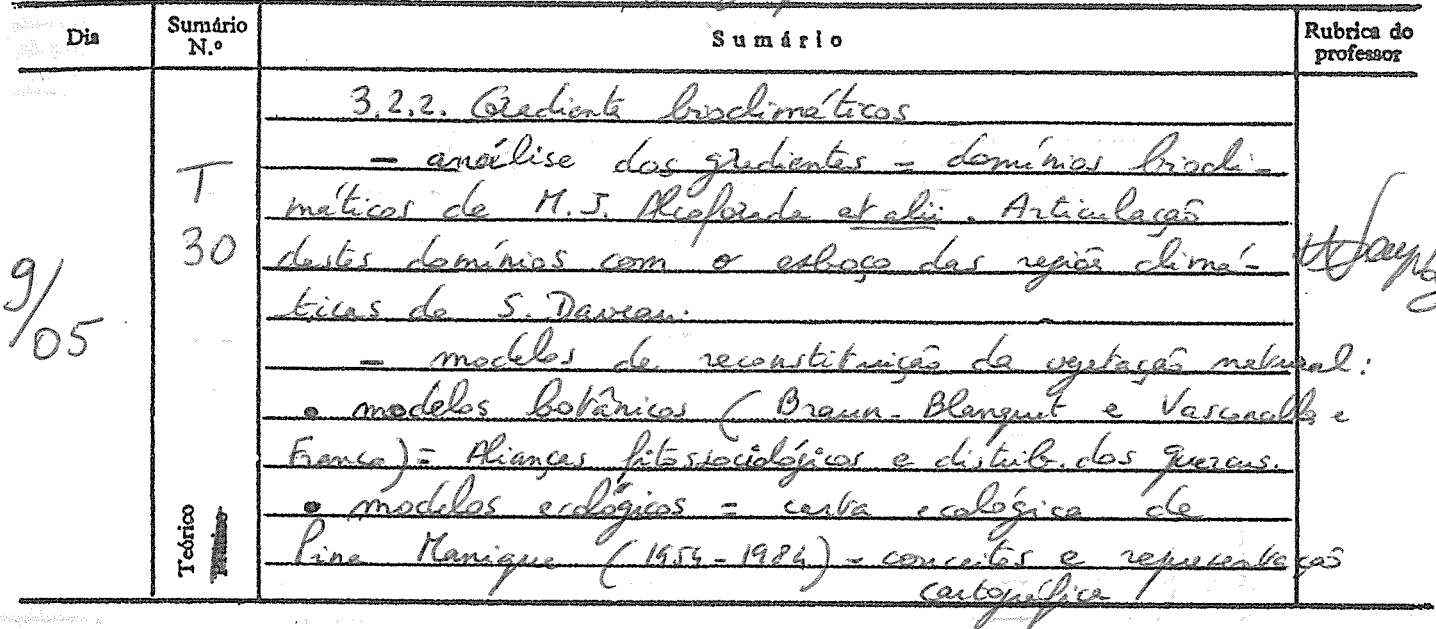 Dia
Sumário N.º
Sumário
Rubrica do professor
9/05
T
30
Teórico
3.2.2. Gradiente bioclimáticos
- análise dos gradientes = domínios biocli-
máticos de M. J. Alcoforado et alii. Articulação
destes domínios com o esboço das regiões climá-
ticas de S. Daveau.
- modelos de reconstituição da vegetação natural:
• modelos botânicos (Braun-Blanquet e Vasconcellos e
Franco) = Alianças fitossociológicos e distrib. dos quercus.
• modelos ecológicos = carta ecológica de
Pina Manique (1954-1984) - conceitos e representação
cartográfica